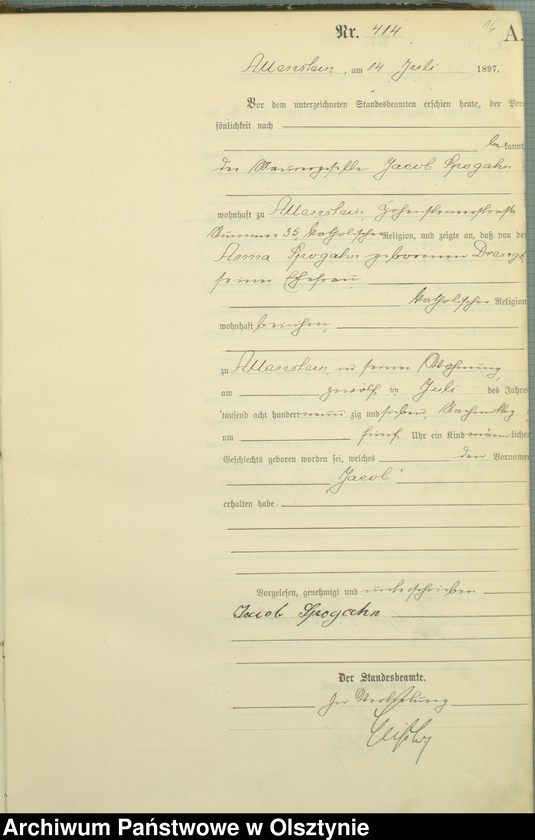 Nr. 414
A.
Allenstein, am 14 Juli 1897.
Vor dem unterzeichneten Standesbeamten erschien heute, der Per-
sönlichkeit nach
bekannt,
der Maurergeselle Jacob Spogahn
wohnhaft zu Allenstein, Hohensteinerstraße
Nummer 35, katholischer Religion, und zeigte an, daß von der
Anna Spogahn geborenen
seiner Ehefrau
katholischer Religion
wohnhaft bei ihm,
zu Allenstein, in seiner Wohnung
am zwölf ten Juli des Jahres
tausend acht hundert neun zig und sieben, Nachmittag
um fünf Uhr ein Kind männ lichen
Geschlechts geboren worden sei, welches den Vornamen
Jacob
erhalten habe
Vorgelesen, genehmigt und unterschrieben
Jacob Spogahn
Der Standesbeamte.
In Vertretung
Archiwum Państwowe w Olsztynie